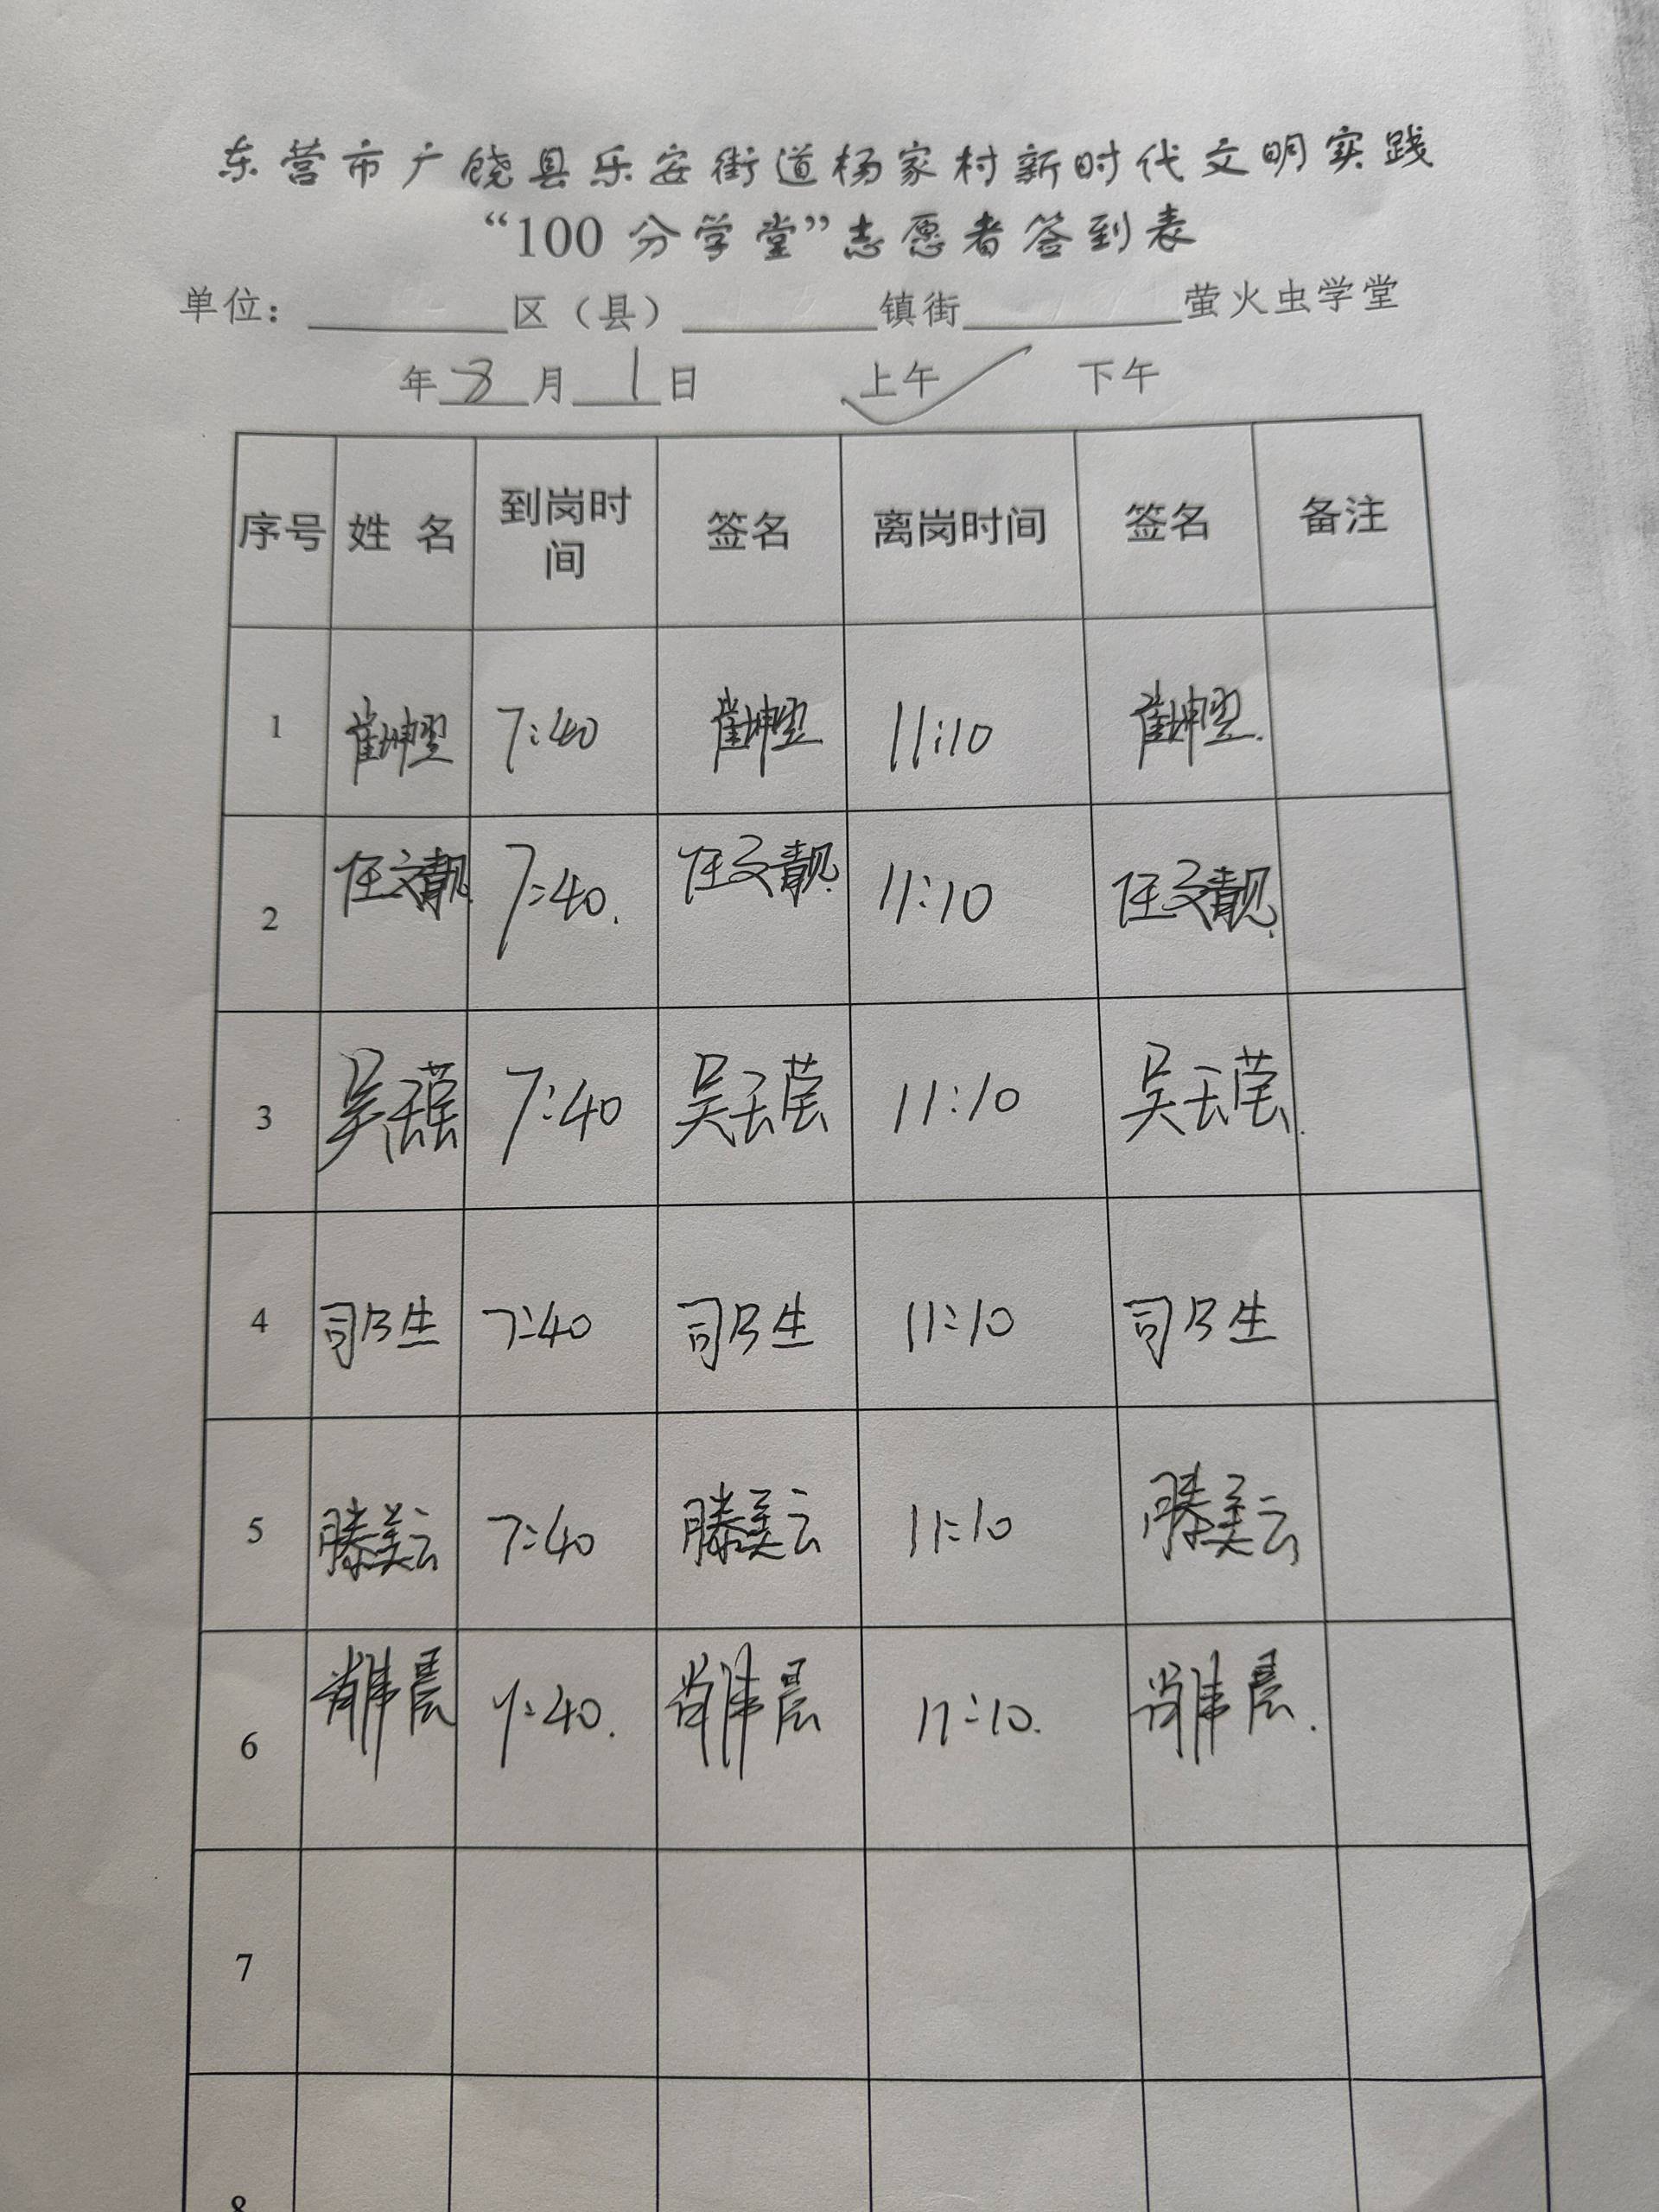 东营市广饶县乐安街道杨家村新时代文明实践
“100分学堂”志愿者签到表
单位：________区（县）________镇街________萤火虫学堂
年 8 月 1 日 上午✓ 下午
序号 姓 名 到岗时间 签名 离岗时间 签名 备注
1 崔坤 7:40 崔坤 11:10 崔坤
2 任文靓 7:40. 任文靓. 11:10 任文靓.
3 吴 7:40 吴 11:10 吴
4 司乃生 7:40 司乃生 11:10 司乃生
5 滕美云 7:40 滕美云 11:10 滕美云
6 晨 7:40. 晨 11:10. 晨.
7
8